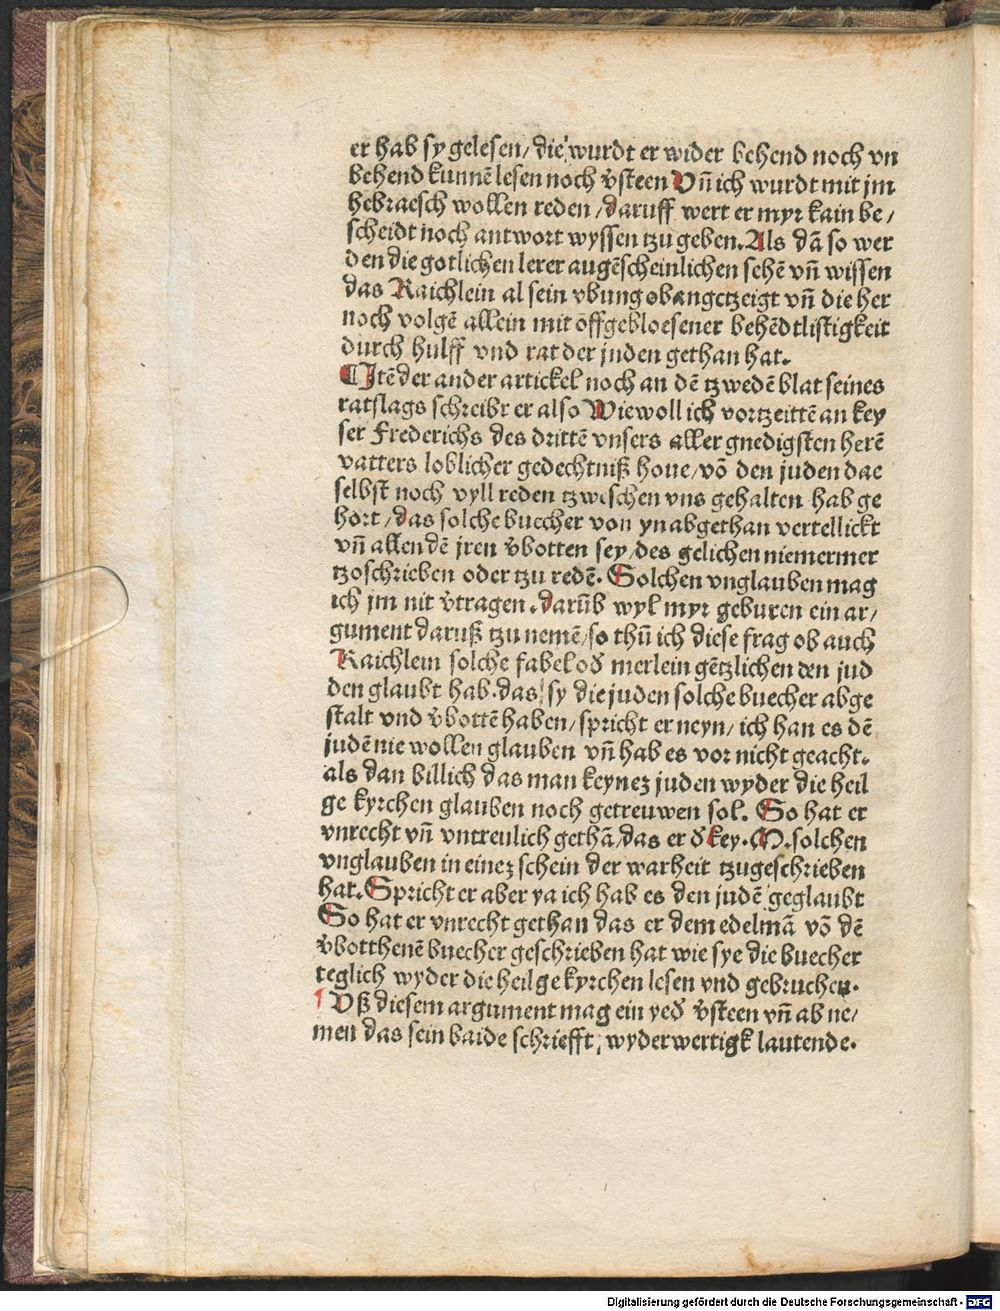 er hab sy gelesen/ die wurdt er wider behend noch vn
behend kunnē lesen noch v̄steen Vn̄ ich wurdt mit jm
hebraesch wollen reden /daruff wert er myr kain be/
scheidt noch antwort wyssen tzu geben. Als dā so wer
den die gotlichen lerer augēscheinlichen sehē vn̄ wissen
das Raichlein al sein vbung obangetzeigt vn̄ die her
noch volgē allein mit offgebloesener behēdtlistigkeit
durch hulff vnd rat der juden gethan hat.
¶ Itē der ander artickel noch an dē tzwedē blat seines
ratslags schreibt er also Wiewoll ich vortzeittē an key
ser Frederichs des drittē vnsers aller gnedigsten herē
vatters loblicher gedechtniß houe/ vō den juden dae
selbst noch vyll reden tzwischen vns gehalten hab ge
hort /das solche buecher von yn abgethan vertellickt
vn̄ allen dē jren v̄botten sey/des gelichen niemermer
tzoschrieben oder tzu redē. Solchen vnglauben mag
ich jm nit v̄tragen. darūb wyl myr geburen ein ar/
gument daruß tzu nemē/so thū ich diese frag ob auch
Raichlein solche fabel od̄ merlein gētzlichen den jud
den glaubt hab. das sy die juden solche buecher abge
stalt vnd v̄bottē haben/ spricht er neyn/ ich han es dē
judē nie wollen glauben vn̄ hab es vor nicht geacht.
als dan billich das man keynez juden wyder die heil
ge kyrchen glauben noch getreuwen sol. So hat er
vnrecht vn̄ vntreulich gethā/das er d̄ key. M. solchen
vnglauben in einez schein der warheit tzugeschrieben
hat. Spricht er aber ya ich hab es den judē geglaubt
So hat er vnrecht gethan das er dem edelmā vō dē
v̄botthenē buecher geschrieben hat wie sye die buecher
teglich wyder die heilge kyrchen lesen vnd gebruchen.
¶ Vß diesem argument mag ein yed̄ v̄steen vn̄ ab ne/
men das sein baide schriefft, wyderwertigk lautende.
Digitalisierung gefördert durch die Deutsche Forschungsgemeinschaft - DFG